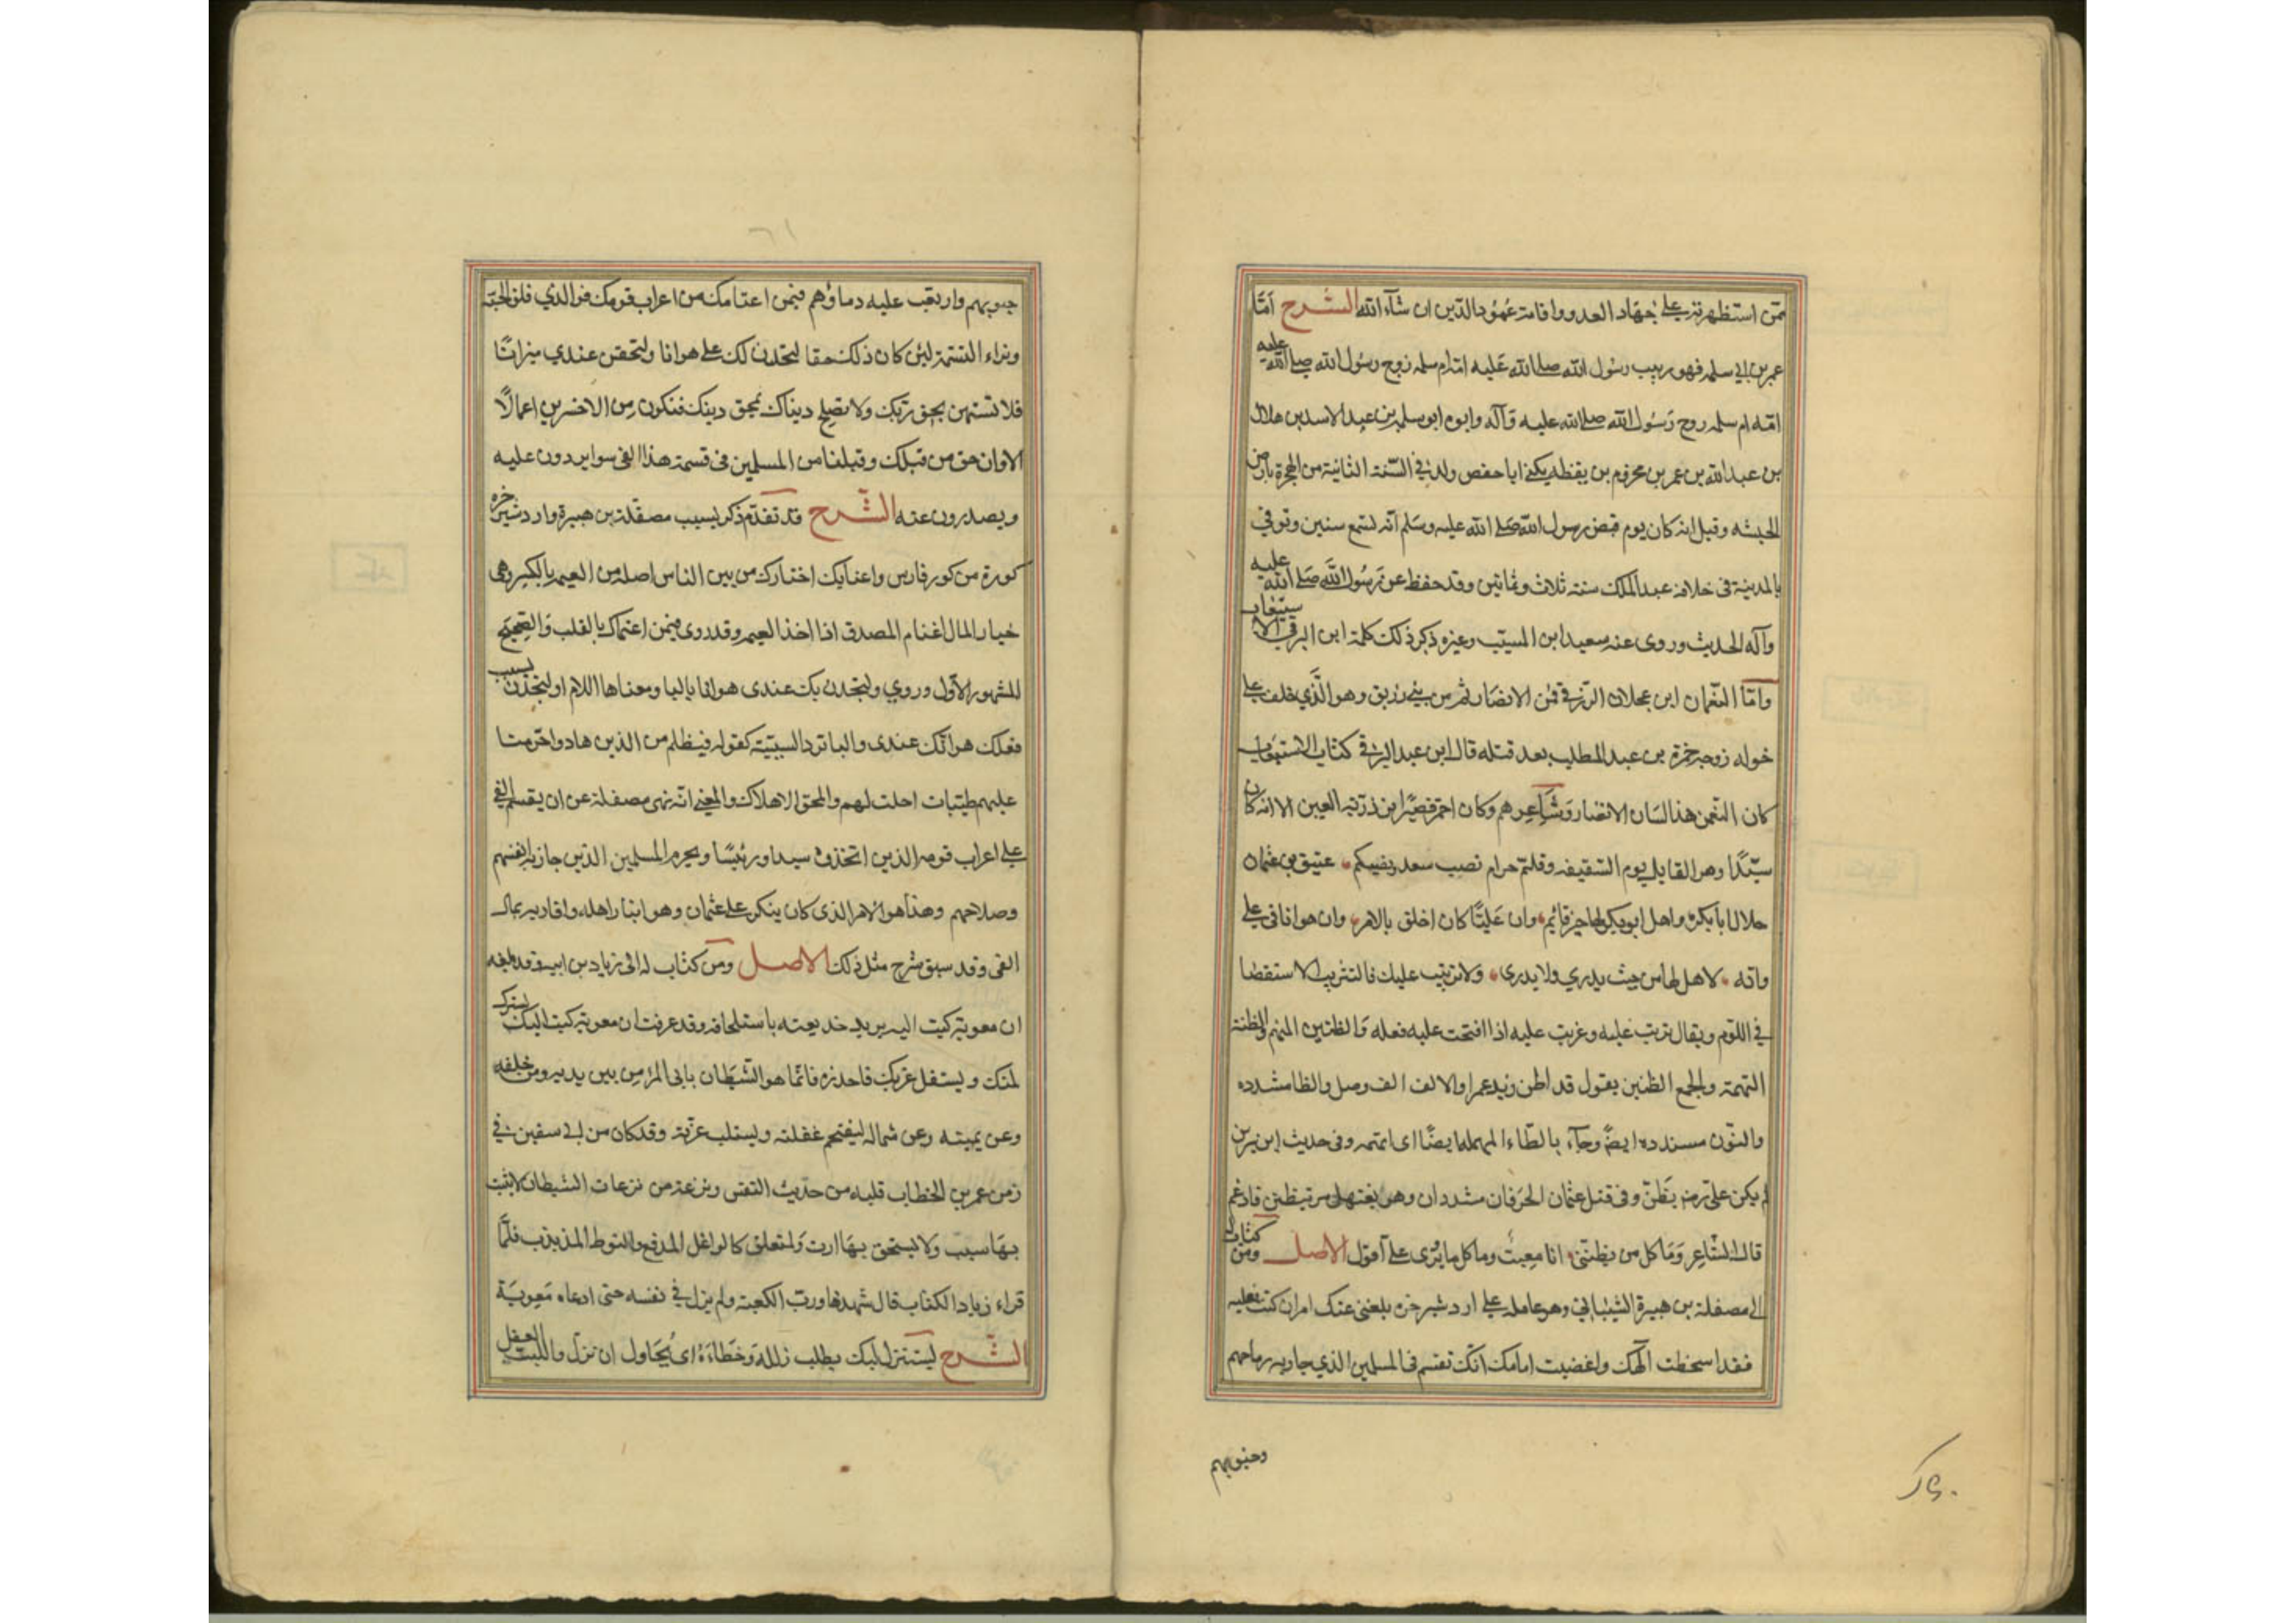 ممن استظهر به على جهاد العدو واقامة عمود الدين ان شآء الله الشرح امّا
عمر بن ابي سلمه فهو ربيب رسول الله صلى الله عليه امه ام سلمه زوج رسول الله صلى الله عليه
امّه ام سلمه زوج رسول الله صلى الله عليه وآله وابوه ابو سلمه بن عبد الاسد بن هلال
بن عبد الله بن عمر بن مخزوم بن يقظه يكنى ابا حفص ولد في السّنة الثانية من الهجرة بارض
الحبشه وقيل انه كان يوم قبض رسول الله صلى الله عليه وسلم ابن تسع سنين وتوفي
بالمدينة في خلافة عبد الملك سنة ثلاث وثمانين وقد حفظ عن رسول الله صلى الله عليه
وآله الحديث وروى عنه سعيد ابن المسيب وغيره ذكر ذلك كلمة ابن البرقي الاستيعاب
وامّا النعمان ابن عجلان الزرقي فمن الانصار ثم من بني زريق وهو الّذي خلف على
خوله زوجة حمزة بن عبد المطلب بعد قتله قال ابن عبد البر في كتاب الاستيعاب
كان النعمن هذا لسان الانصار وشاعرهم وكان احمر قصيرا ترذريه العين الا انه كان
سيّدًا وهو القايل يوم السّقيفه وقلتم حرام نصب سعد ونصبكم عتيق بن عثمان
حلال ابا بكره واهل ابو بكر لها خير قائم وان عليّا كان اخلق بالامر وان هوانا في علي
وانه لاهل لها من حيث يدري ولا يدرى ولا تثريب عليك فالتثريب الاستقضا
في اللوم ويقال ثربت عليه وعربت عليه اذا اقبحت عليه فعله والظنين المتهم والظنة
التهمة والجمع الظنين يقول قد اظن زيد عمرا والالف الف وصل والظا مشدده
والنّون مسندده ايضا وجآء بالطاء المهمله ايضًا اى اتهمه وفى حديث ابن سيرين
لم يكن علىّ رضه يظّنّ وفى قتل عثمان الحرفان مشددان وهو يفتعل من تظنن فادغم
قال الشّاعر وَمَا كل من يظنني انا معتب وما كل ما يُرْوى علىّ اقول الاصل ومن كتاب له
الى مصقلة بن هبيرة الشيباني وهو عامله على اردشير خره بلغنى عنك امر ان كنت فعلته
فقد اسخطت الهك واغضبت امامك انك تقسم فئ المسلمين الذي حازته رماحهم
وخيولهم
جيوبهم واريقت عليه دماؤهم فيمن اعتامك من اعراب قومك فوالذي فلق الحبّه
وبراء النسمة لئن كان ذلك حقا لتجدن لك على هوانا ولتخفن عندي ميزانًا
فلا تستهن بحق ربّك ولا تصلح دنياك بمحق دينك فتكون من الاخسرين اعمالًا
الاوان حق من قبلك وقبلنا من المسلمين فى قسمة هذا الفئ سوا يردون عليه
ويصدرون عنه الشّرح قد تقدّم ذكر نسب مصقلة بن هبيرة واردشير خره
كورة من كور فارس واعتامك اختارك من بين الناس اصله من العيمه بالكسر وهى
خيار المال اعتام المصدق اذا اخذ العيمه وقد روى فيمن اعتماك بالقلب والصّحيح
المشهور الاوّل وروي ولتجدن بك عندى هوانا باليا ومعناها اللام او لتجدن بسبب
فعلك هوانك عندى والبا ترد السببيّة كقوله فبظلم من الذين هادوا حرمنا
عليهم طيّبات احلت لهم والمحق الاهلاك والمعنى انه نهى مصقلة عن ان يقسم الفئ
على اعراب قومه الذين اتخذوه سيدا ورئيسًا ويحرم المسلمين الذين حازوه بانفسهم
وصلاحهم وهذا هو الامر الذى كان ينكر على عثمان وهو ايثار اهله واقاربه بمال
الفئ وقد سبق شرح مثل ذلك الاصل ومن كتاب له الى زياد بن ابيه وقد بلغه
ان معوية كتب اليه يريد خديعته باستلحاقه وقد عرفت ان معوية كتب اليك يستزل
لبّك ويستفل غربك فاحذره فانّما هو الشيطان ياتى المرء من بين يديه ومن خلفه
وعن يمينه وعن شماله ليقتحم غفلته ويستلب غرّته وقد كان من ابي سفين في
زمن عمر بن الخطاب فلته من حديث النفس ونزغة من نزغات الشيطان لا يثبت
بها نسب ولا يستحق بها ارث والمتعلق كالواغل المدفع والنوط المذبذب فلمّا
قراء زياد الكتاب قال شهد بها ورب الكعبة ولم يزل في نفسه حتى ادعاه معوية
الشّرح ليستنزل لبك يطلب زلله وخطاءَهُ اى يُحَاول ان تزل واللب العقل